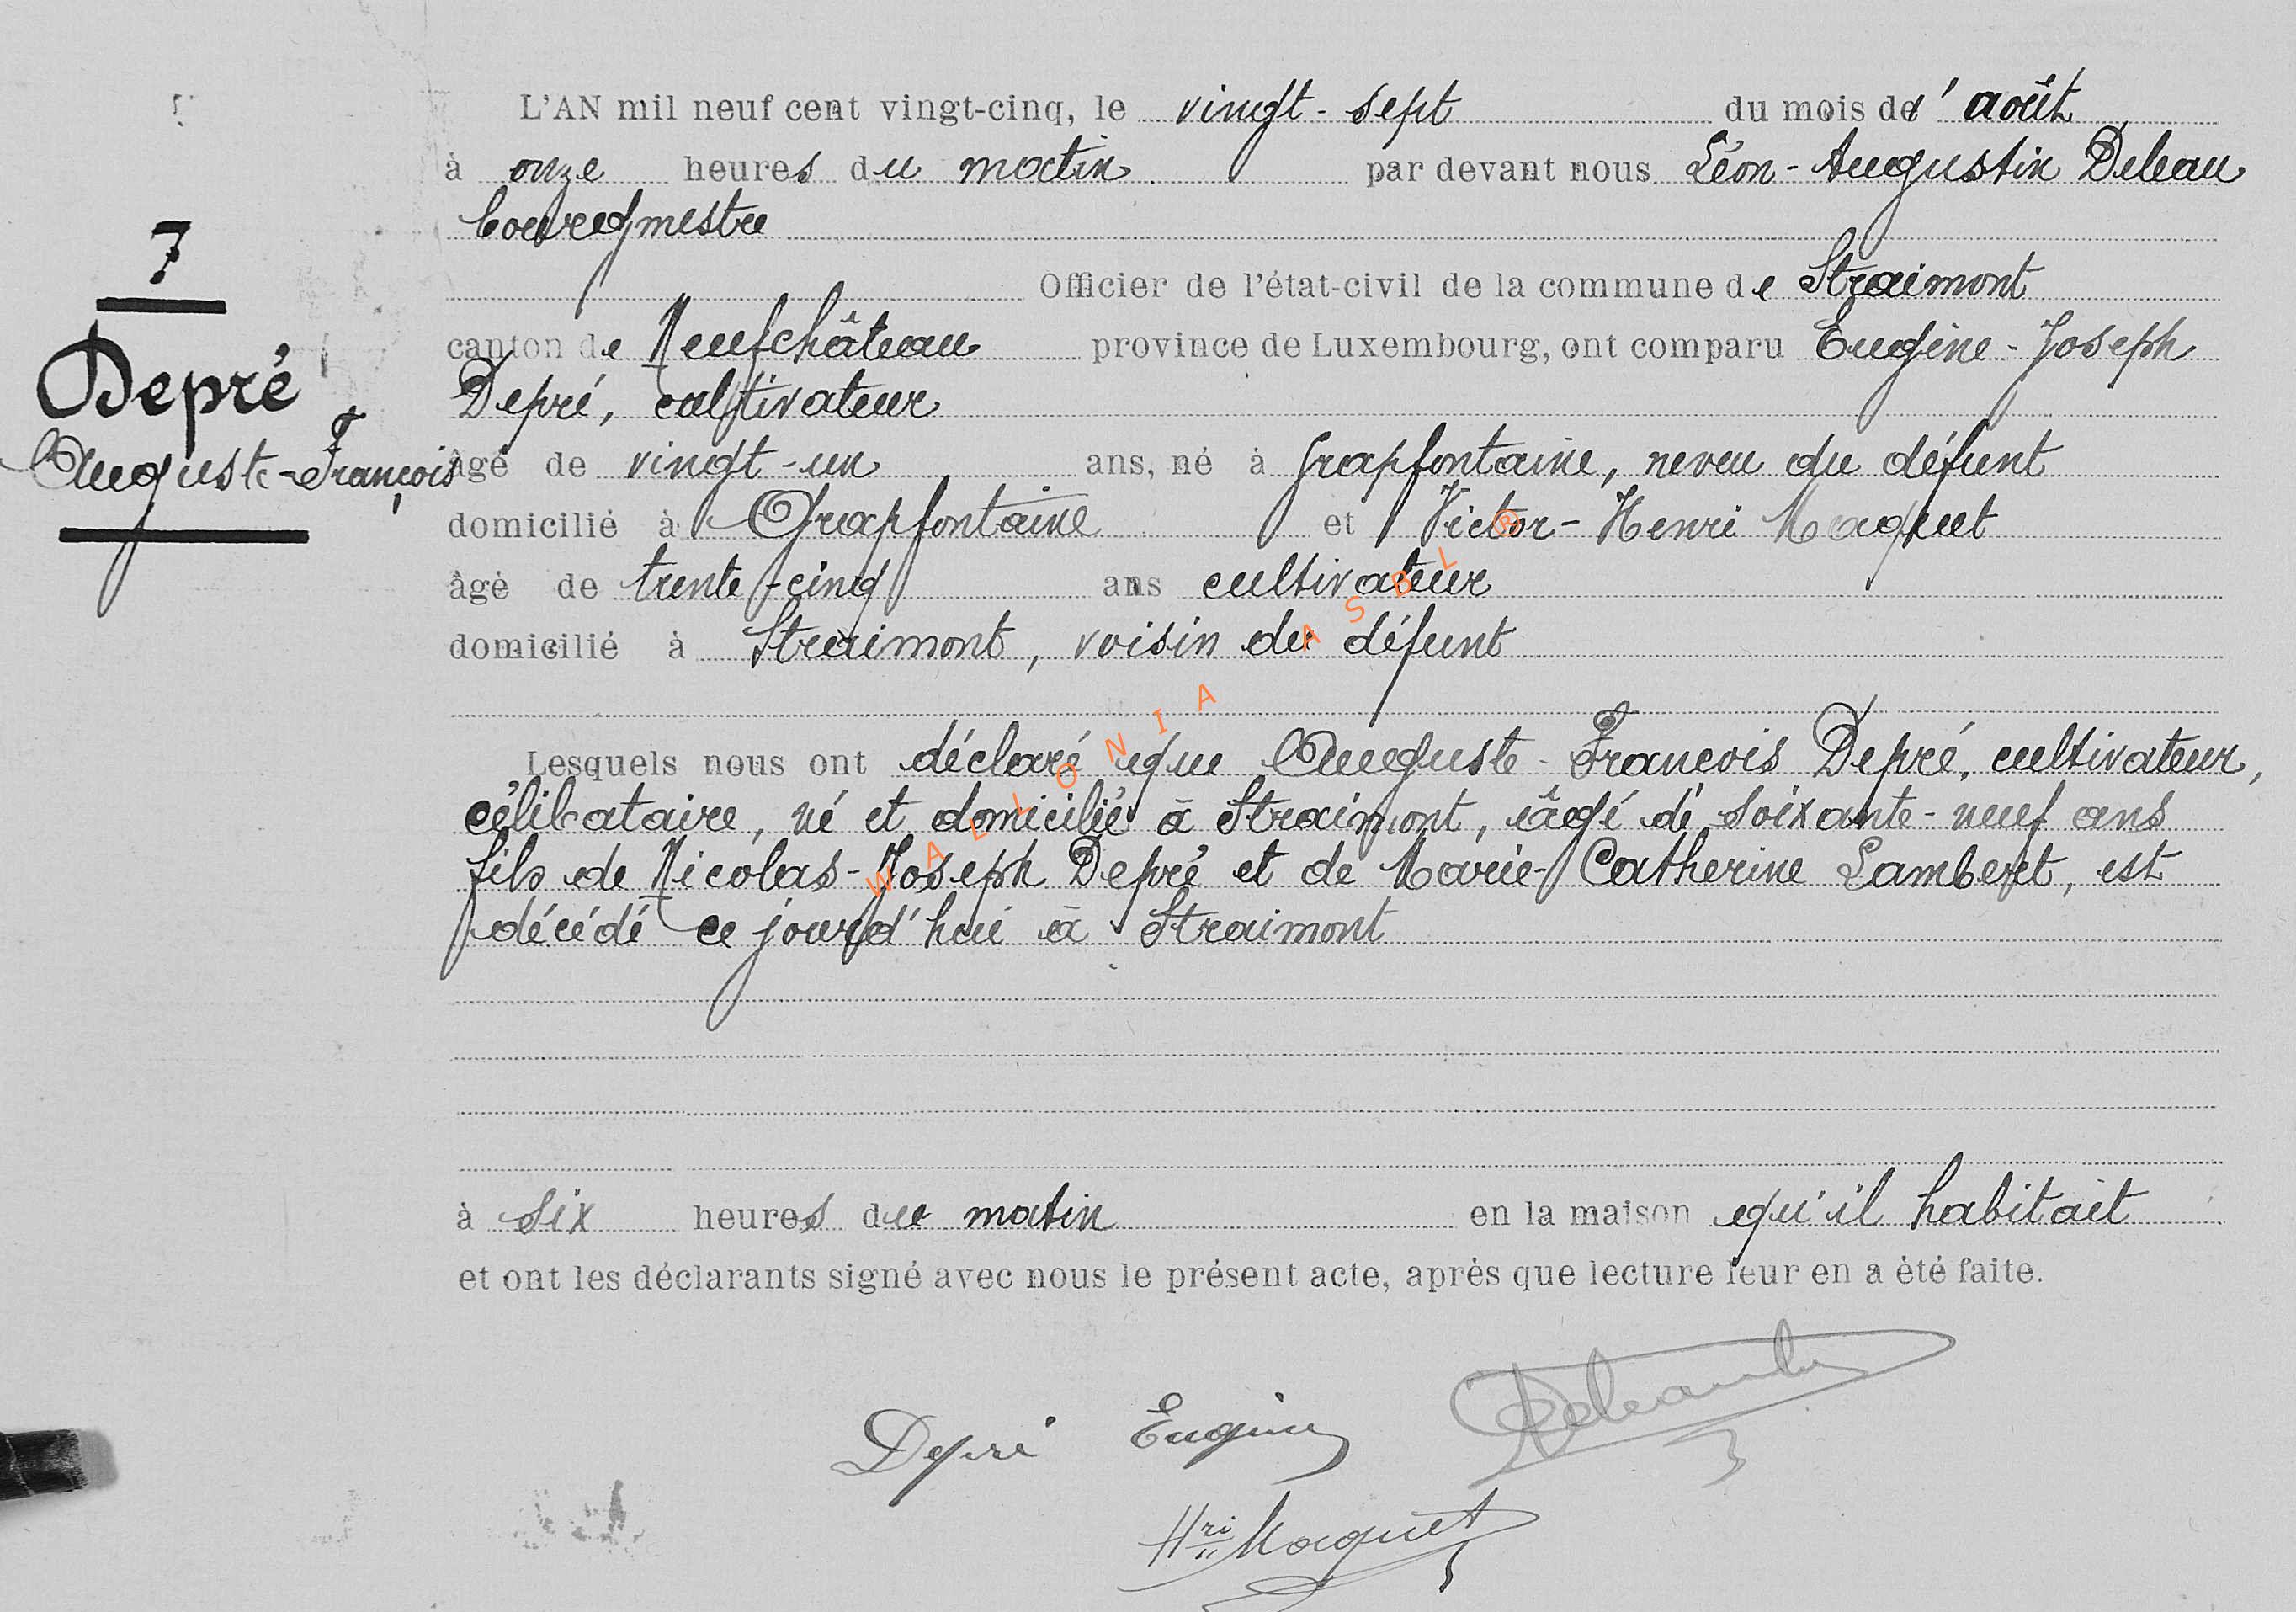 L'AN mil neuf cent vingt-cinq, le vingt-sept du mois d' août
à onze heures du matin par devant nous Léon-Augustin Deleau
bourgmestre
Officier de l'état-civil de la commune de Straimont
canton de Neufchâteau province de Luxembourg, ont comparu Eugène-Joseph
Depré, cultivateur
7
Depré
Auguste-François
âgé de vingt-un ans, né à Grapfontaine, neveu du défunt
domicilié à Grapfontaine et Victor-Henri Maquet
âgé de trente-cinq ans cultivateur
domicilié à Straimont, voisin du défunt
Lesquels nous ont déclaré que Auguste-François Depré, cultivateur,
célibataire, né et domicilié à Straimont, âgé de soixante-neuf ans
fils de Nicolas-Joseph Depré et de Marie-Catherine Lambert, est
décédé ce jourd'hui à Straimont
à six heures du matin en la maison qu'il habitait
et ont les déclarants signé avec nous le présent acte, après que lecture leur en a été faite.
Depré Eugène
Hri Maquet
WALLONIA ASBL ®